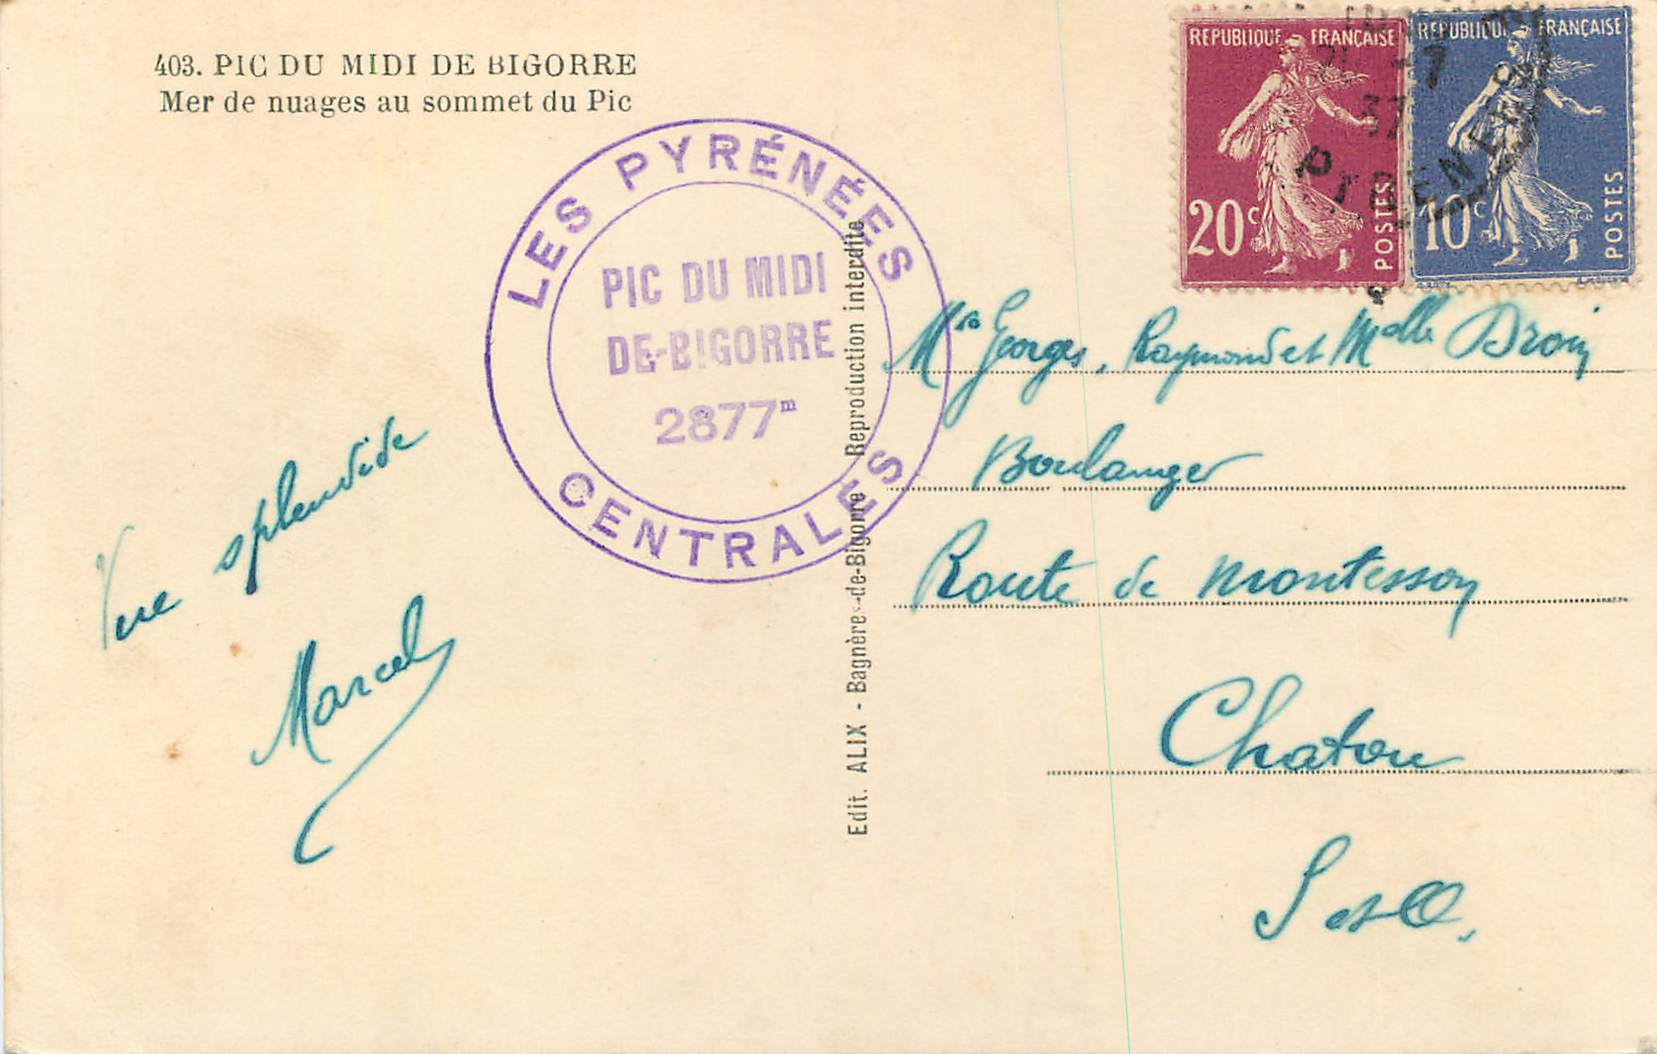 403. PIC DU MIDI DE BIGORRE
Mer de nuages au sommet du Pic
LES PYRÉNÉES
PIC DU MIDI
DE-BIGORRE
2877m
CENTRALES
Edit. ALIX - Bagnères-de-Bigorre Reproduction interdite
REPUBLIQUE FRANÇAISE
20c
POSTES
REPUBLIQUE FRANÇAISE
10c
POSTES
-7
37
PYRENEES
Vue splendide
Marcel
Mrs Georges, Raymond et Melle Droin
Boulanger
Route de Montesson
Chatou
S et O.